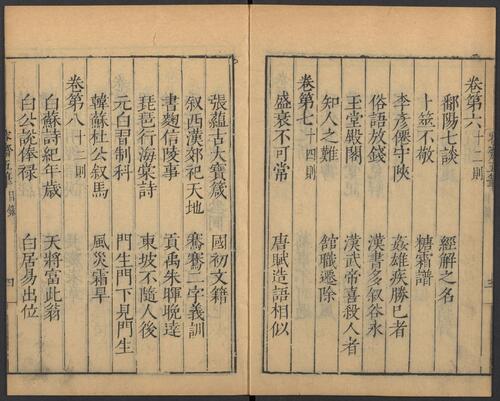 卷第六 十二則
鄱陽七談 經解之名
卜筮不敬 糖霜譜
李彥僊守陝 姦雄疾勝己者
俗語放錢 漢書多叙谷永
玉堂殿閣 漢武帝喜殺人者
知人之難 館職遷除
卷第七 十四則
盛衰不可常 唐賦造語相似
張蘊古大寶箴 國初文籍
叙西漢郊祀天地 騫鶱二字義訓
書麴信陵事 貢禹朱暉晚達
琵琶行海棠詩 東坡不隨人後
元白習制科 門生門下見門生
韓蘇杜公叙馬 風災霜旱
卷第八 十二則
白蘇詩紀年歲 天將富此翁
白公說俸祿 白居易出位
目錄
四